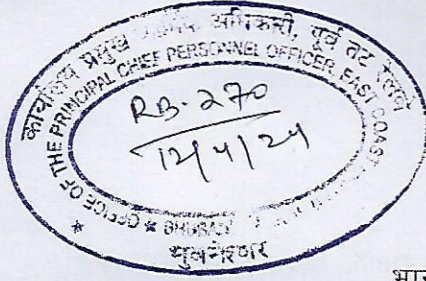 कार्यालय प्रमुख अधिकारी, पूर्व तट रेलवे
OFFICE OF THE PRINCIPAL CHIEF PERSONNEL OFFICER, EAST COAST
RB-270
12/4/24
भुवनेश्वर
भार